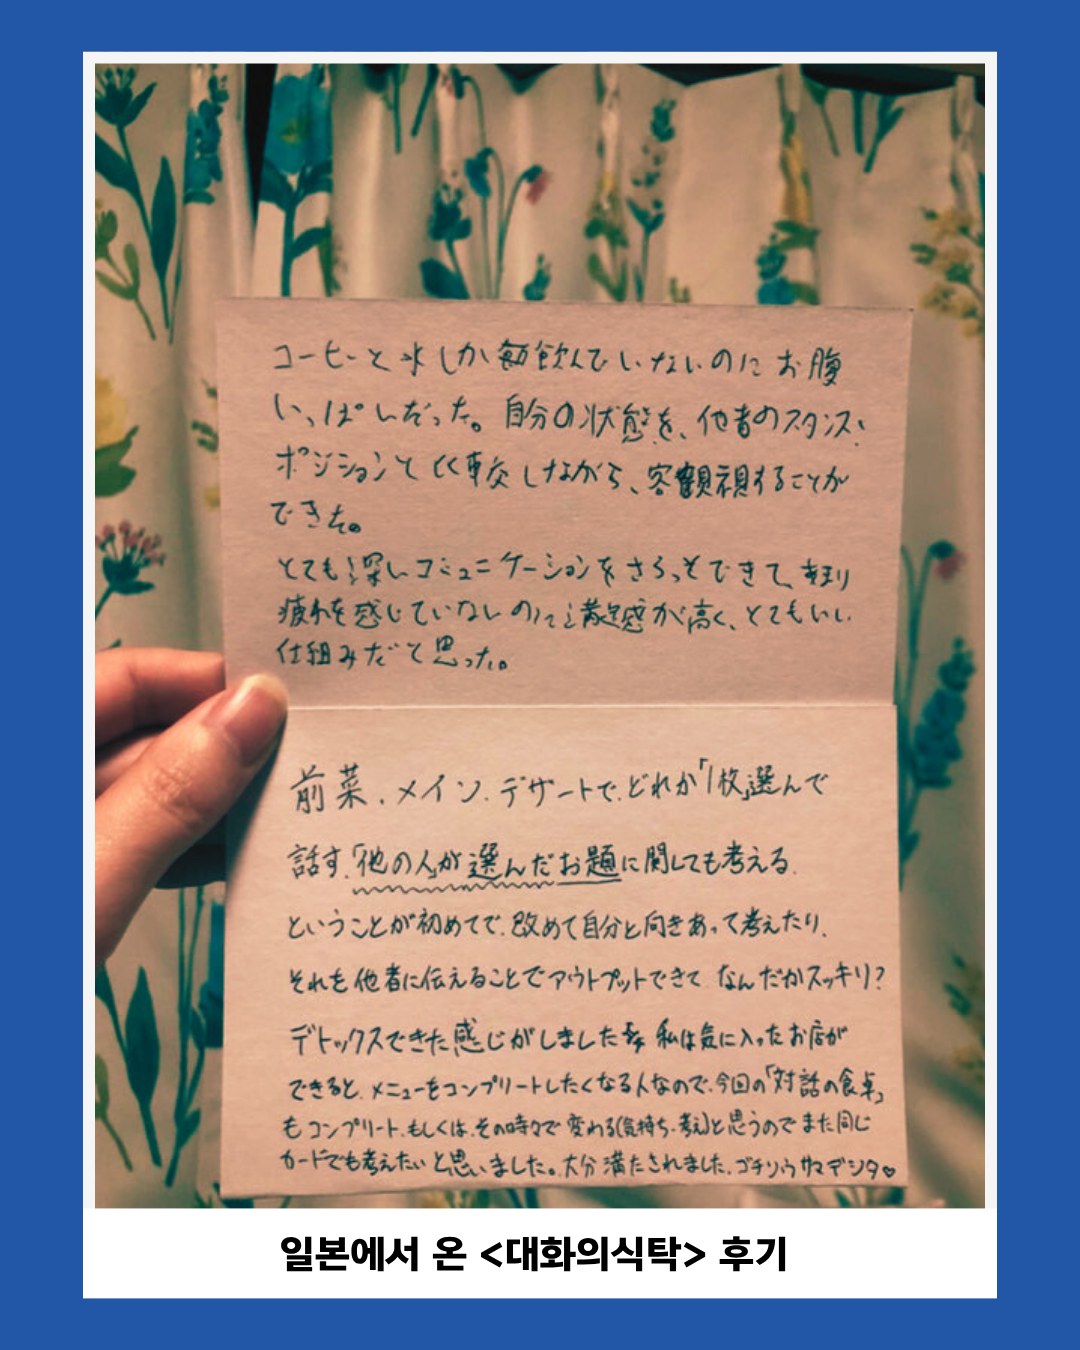 コーヒーと水しか飲んでいないのにお腹
いっぱいだった。自分の状態を、他者のスタンス・
ポジションと比較しながら、客観視することが
できた。
とても深いコミュニケーションをさらっとできて、あまり
疲れを感じていないのに満足感が高く、とてもいい
仕組みだと思った。
前菜、メイン、デザートで、どれか「1枚」選んで
話す、「他の人」が選んだお題に関しても考える、
ということが初めてで、改めて自分と向きあって考えたり、
それを他者に伝えることでアウトプットできて なんだかスッキリ?
デトックスできた感じがしました 私は気に入ったお店が
できると、メニューをコンプリートしたくなる人なので、今回の「対話の食卓」
もコンプリート、もしくは、その時々で変わる(気持ち・考え)と思うのでまた同じ
カードでも考えたいと思いました。大分満たされました、ゴチソウサマデシタ♡
일본에서 온 <대화의식탁> 후기